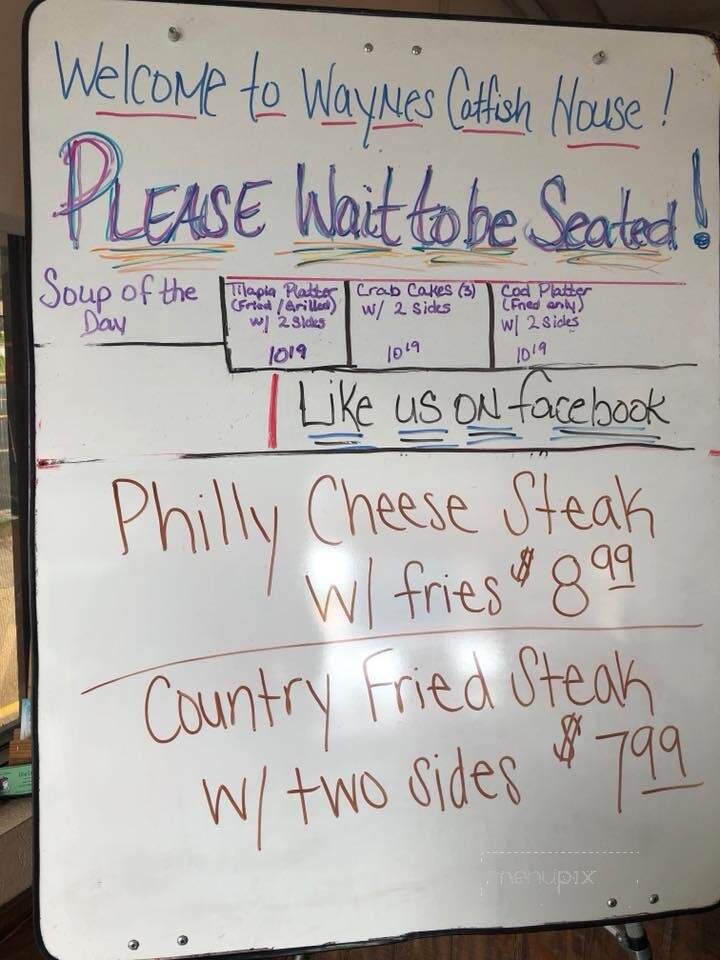 Welcome to Waynes Catfish House!
PLEASE Wait to be Seated!
Soup of the
Day
Tilapia Platter
(Fried/Grilled)
w/ 2 Sides
10¹⁹
Crab Cakes (3)
w/ 2 Sides
10¹⁹
Cod Platter
(Fried only)
w/ 2 Sides
10¹⁹
Like us on facebook
Philly Cheese Steak
w/ fries $8⁹⁹
Country Fried Steak
w/ two sides $7⁹⁹
menupix